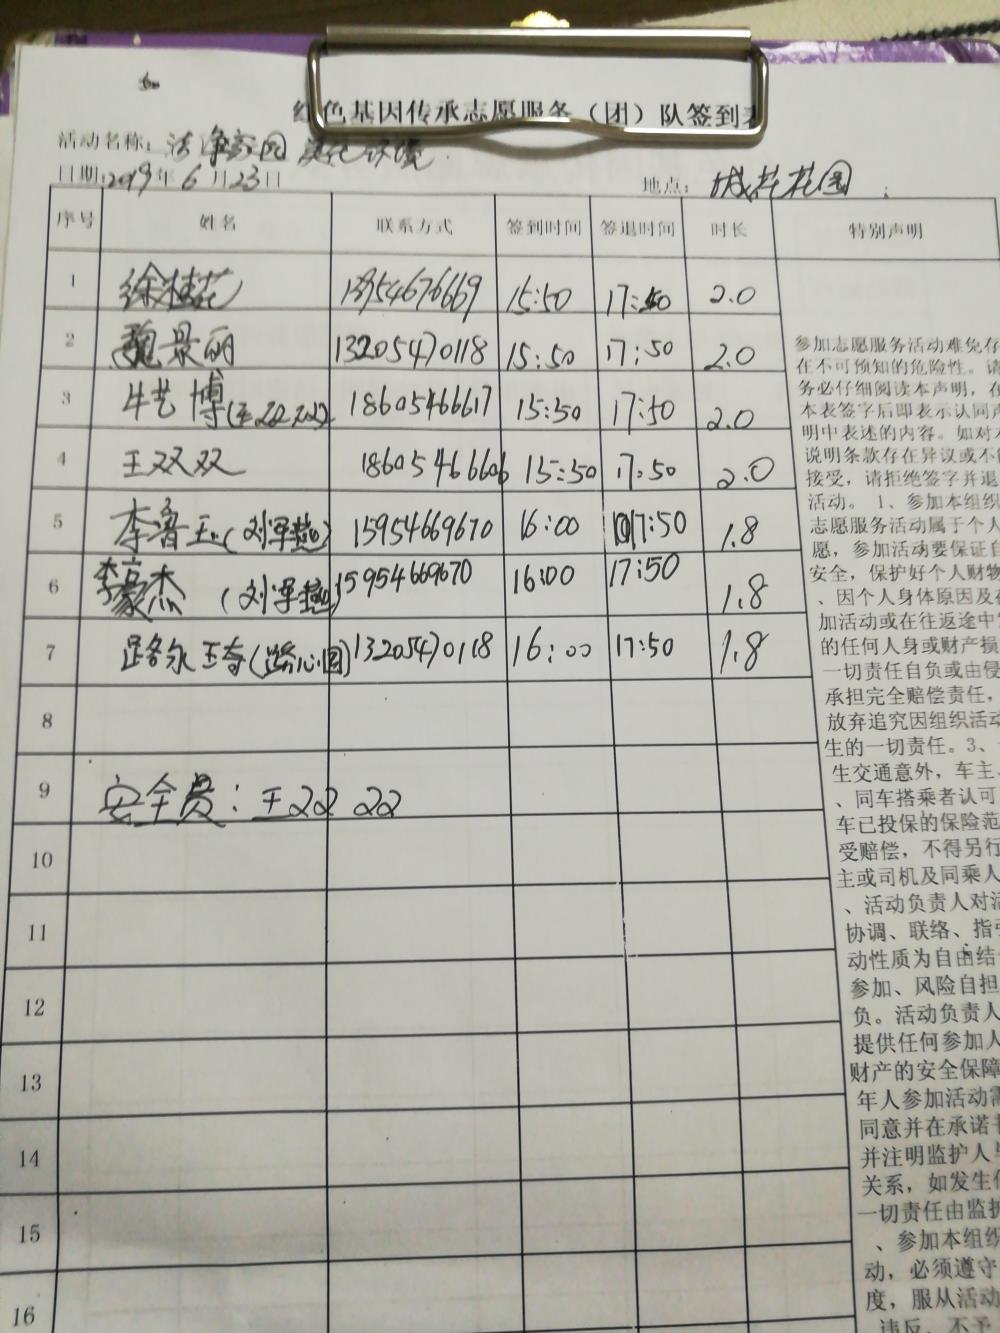 红色基因传承志愿服务（团）队签到表
活动名称：洁净家园 美化环境
日期:2019年6月23日 地点：
序号 姓名 联系方式 签到时间 签退时间 时长 特别声明
1 徐桂花 13954676669 15:50 17:50 2.0
2 魏景丽 13205470118 15:50 17:50 2.0
3 牛艺博(王双双) 18605466617 15:50 17:50 2.0
4 王双双 18605466606 15:50 17:50 2.0
5 李鲁玉(刘军燕) 15954669670 16:00 17:50 1.8
6 李豪杰 (刘军燕) 15954669670 16:00 17:50 1.8
7 路永王奇(路心圆) 13205470118 16:00 17:50 1.8
8
9 安全员：王双双
10
11
12
13
14
15
16
参加志愿服务活动难免存
在不可预知的危险性。请
务必仔细阅读本声明，在
本表签字后即表示认同声
明中表述的内容。如对本
说明条款存在异议或不能
接受，请拒绝签字并退
活动。 1、参加本组织
志愿服务活动属于个人
愿，参加活动要保证自
安全，保护好个人财物
、因个人身体原因及在
加活动或在往返途中
的任何人身或财产损
一切责任自负或由侵
承担完全赔偿责任，
放弃追究因组织活动
生的一切责任。3、
生交通意外，车主、
、同车搭乘者认可
车已投保的保险范
受赔偿，不得另行
主或司机及同乘人
、活动负责人对活
协调、联络、指引
动性质为自由结
参加、风险自担
负。活动负责人
提供任何参加人
财产的安全保障
年人参加活动需
同意并在承诺书
并注明监护人与
关系，如发生
一切责任由监护
、参加本组织
动，必须遵守
度，服从活动
违反，不予